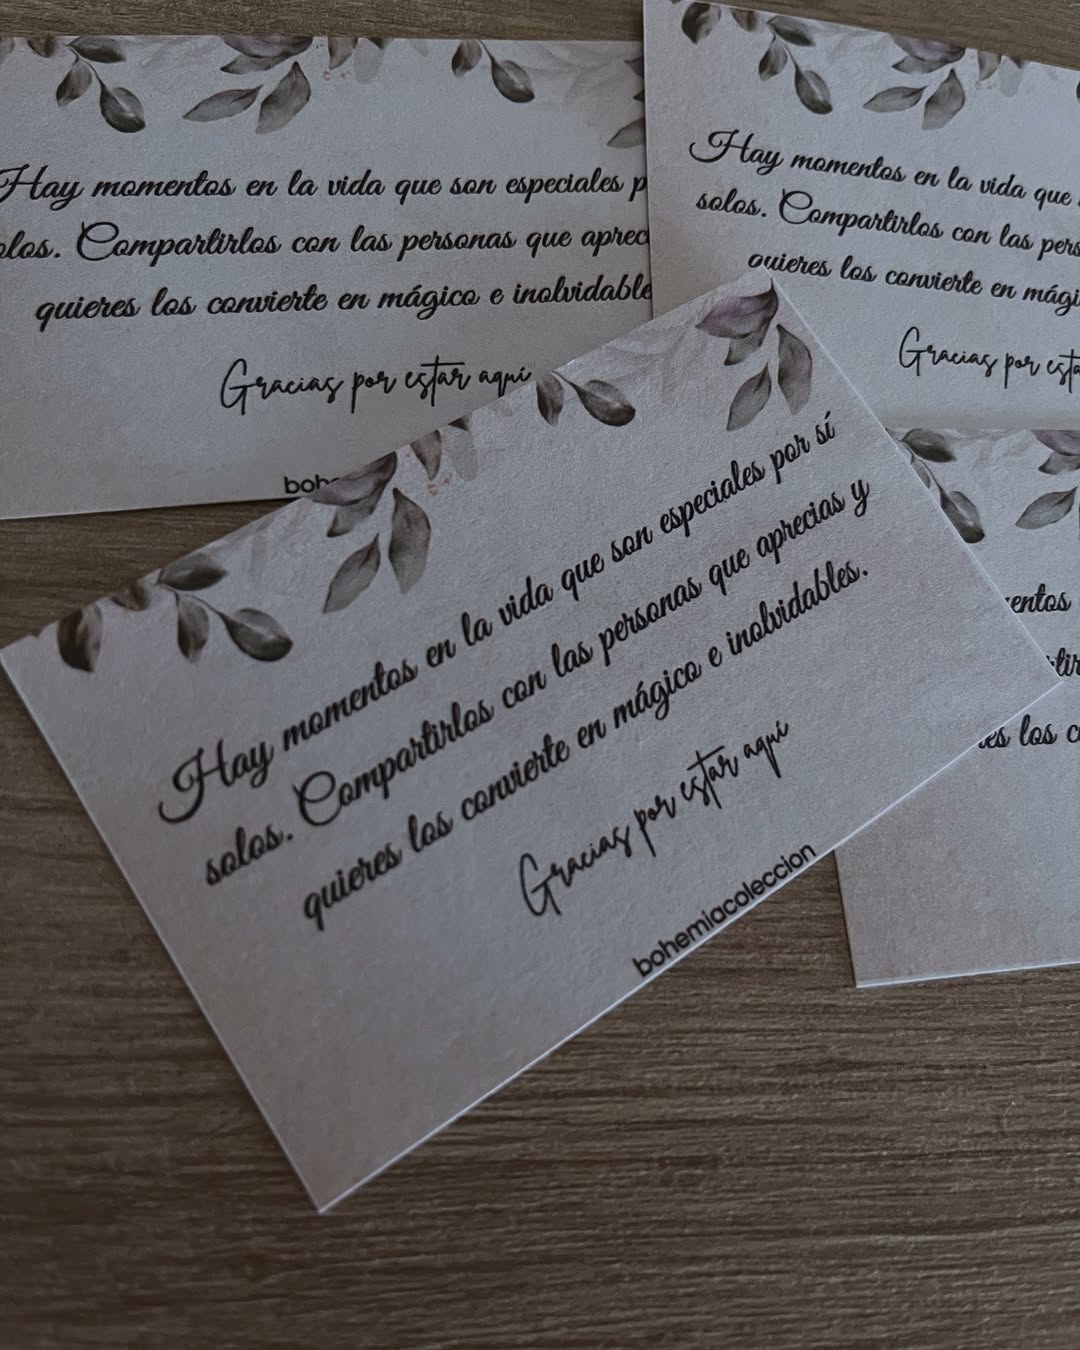 Hay momentos en la vida que son especiales p
olos. Compartirlos con las personas que aprec
quieres los convierte en mágico e inolvidable
Gracias por estar aquí
boh
Hay momentos en la vida que
solos. Compartirlos con las pers
quieres los convierte en mági
Gracias por esta
Hay momentos en la vida que son especiales por sí
solos. Compartirlos con las personas que aprecias y
quieres los convierte en mágico e inolvidables.
Gracias por estar aquí
bohemiacoleccion
entos
tir
es los c